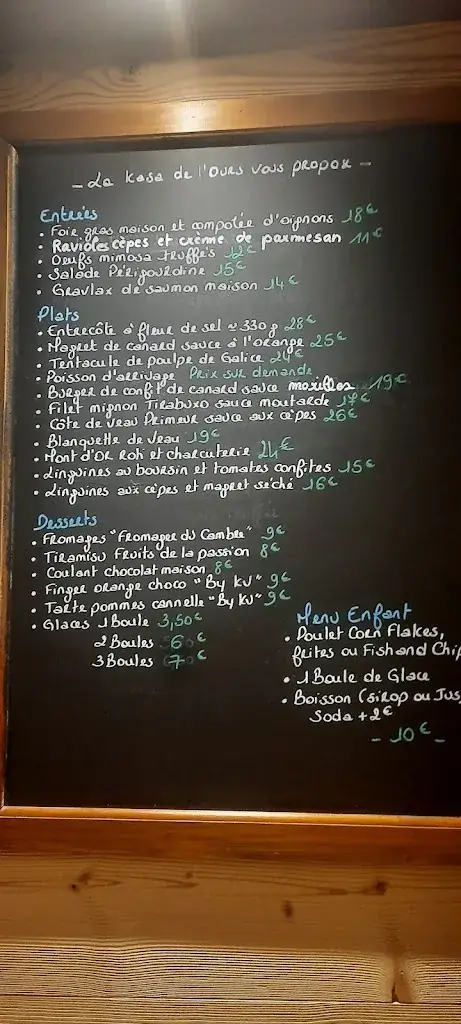 - La Kasa de l'Ours vous propose -
Entrées
• Foie gras maison et compotée d'oignons 18€
• Ravioles cèpes et crème de parmesan 11€
• Oeufs mimosa Truffés 12€
• Salade Périgourdine 15€
• Gravlax de saumon maison 14€
Plats
• Entrecôte à fleur de sel ≃ 330g 28€
• Magret de canard sauce à l'orange 25€
• Tentacule de poulpe de Galice 24€
• Poisson d'arrivage Prix sur demande
• Burger de confit de canard sauce morilles 19€
• Filet mignon Tirabuxo sauce moutarde 17€
• Côte de veau Primeur sauce aux cèpes 26€
• Blanquette de veau 19€
• Mont d'Or Roti et charcuterie 24€
• Linguines au boursin et tomates confites 15€
• Linguines aux cèpes et magret séché 16€
Desserts
• Fromages "Fromager du Cambre" 9€
• Tiramisu fruits de la passion 8€
• Coulant chocolat maison 8€
• Finger orange choco "By KV" 9€
• Tarte pommes cannelle "By KV" 9€
• Glaces 1 Boule 3,50€
2 Boules 6€
3 Boules 7€
Menu Enfant
• Poulet Corn Flakes,
frites ou Fish and Chip
• 1 Boule de Glace
• Boisson (sirop ou Jus
Soda +2€
- 10€ -